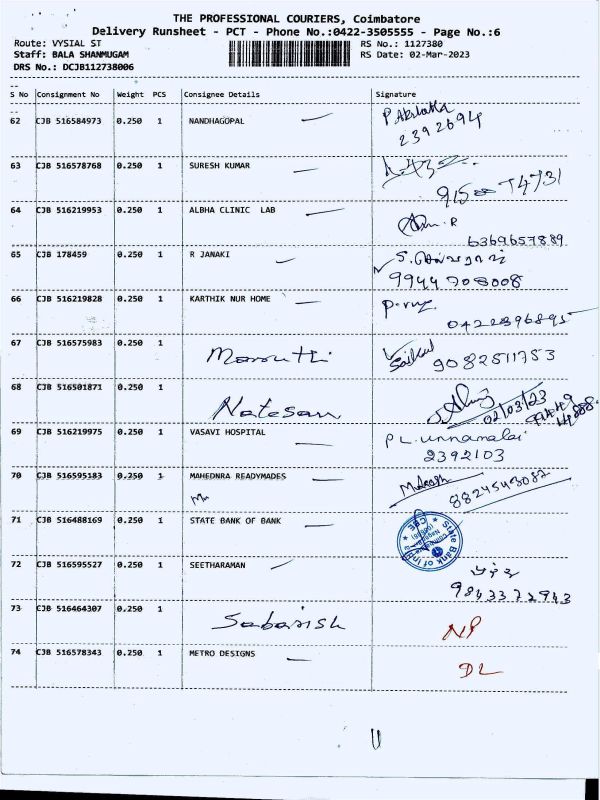 THE PROFESSIONAL COURIERS, Coimbatore
Delivery Runsheet - PCT - Phone No.:0422-3505555 - Page No.:6
Route: VYSIAL ST RS No.: 1127380
Staff: BALA SHANMUGAM RS Date: 02-Mar-2023
DRS No.: DCJB112738006
S No Consignment No Weight PCS Consignee Details Signature
62 CJB 516584973 0.250 1 NANDHAGOPAL
2392694
63 CJB 516578768 0.250 1 SURESH KUMAR
64 CJB 516219953 0.250 1 ALBHA CLINIC LAB
6369657889
65 CJB 178459 0.250 1 R JANAKI
9944708008
66 CJB 516219828 0.250 1 KARTHIK NUR HOME
04222396895
67 CJB 516575983 0.250 1 Maruthi
9082511753
68 CJB 516501871 0.250 1 Natesan
02/03/23
69 CJB 516219975 0.250 1 VASAVI HOSPITAL
PL. unnamalai
2392103
70 CJB 516595183 0.250 1 MAHEDNRA READYMADES
8824543082
71 CJB 516488169 0.250 1 STATE BANK OF BANK
72 CJB 516595527 0.250 1 SEETHARAMAN
9843372943
73 CJB 516464307 0.250 1 Sabarish NP
74 CJB 516578343 0.250 1 METRO DESIGNS DL